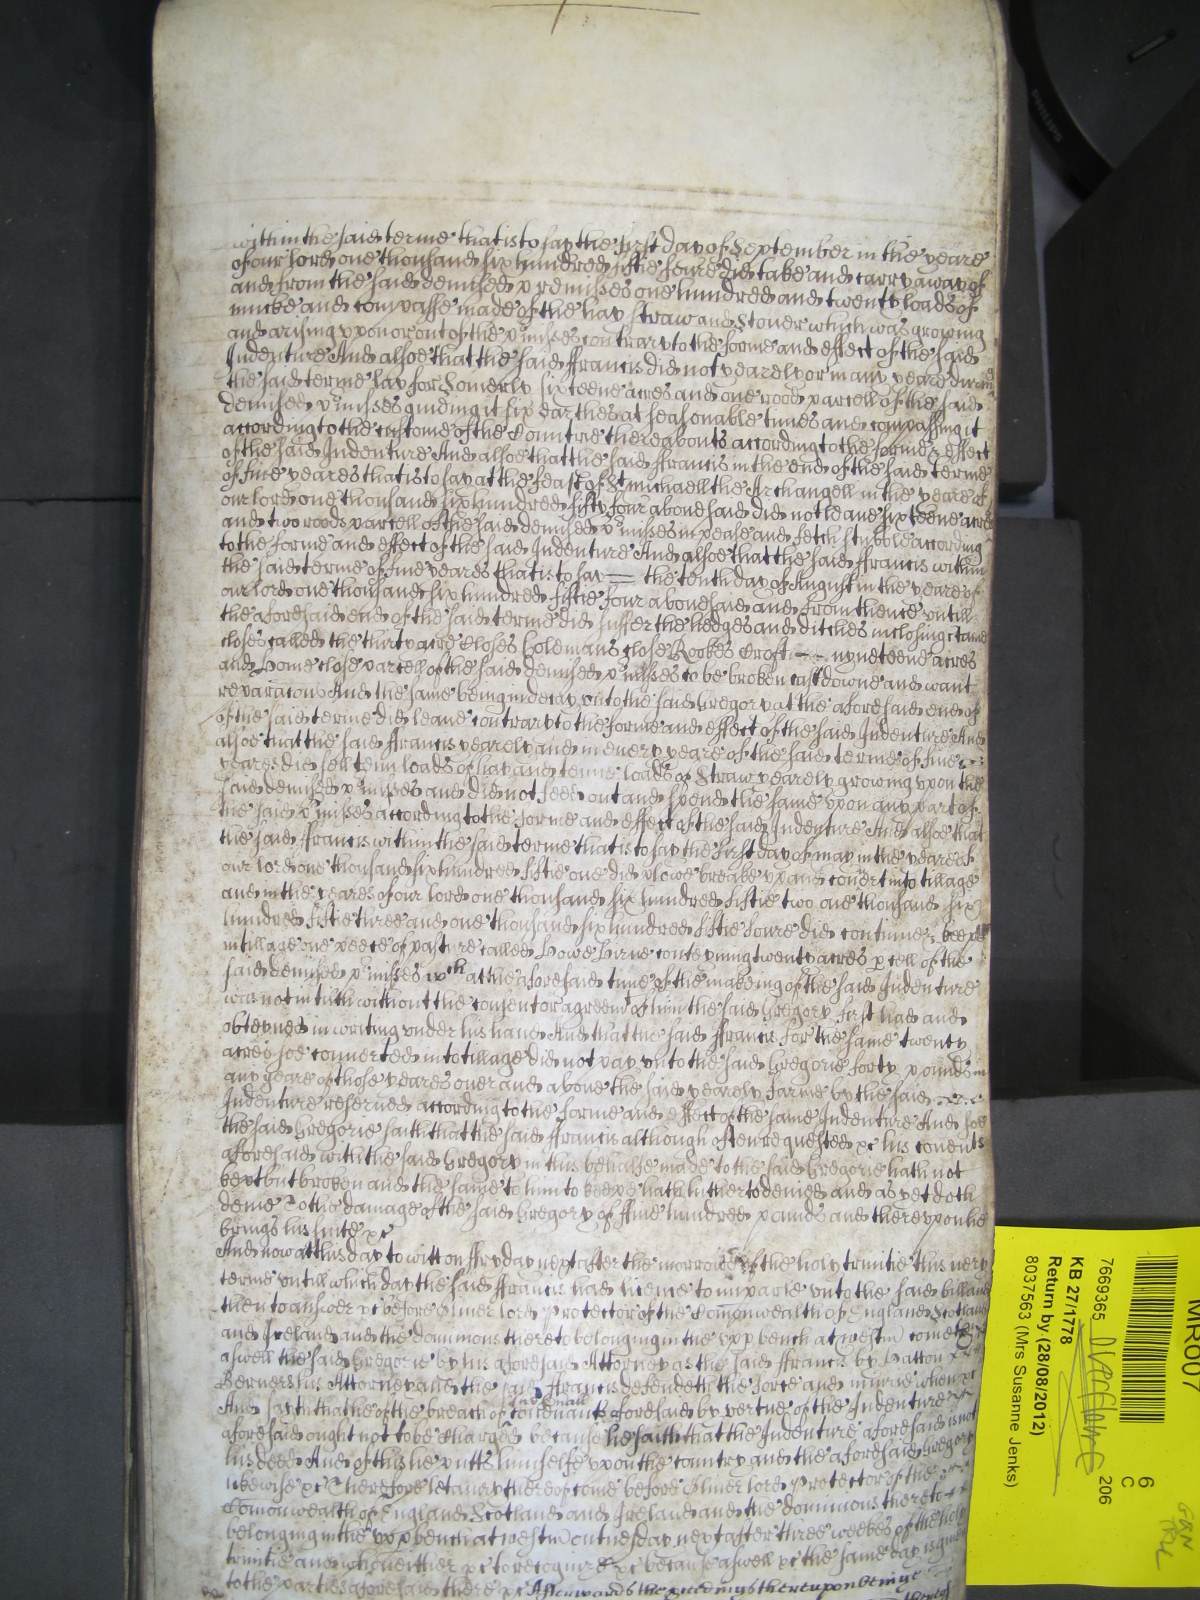 within the said terme that is to say the first day of September in the yeare
of our lord one thousand six hundred fiftie foure did take and carry away of
and from the said demised premisses one hundred and twenty loads of
mucke and compasse made of the hay straw and Stover which was growing
and arising vpon or out of the pmisses contrary to the forme and effect of the said
Indenture And alsoe that the said ffrancis did not yearely or in any yeare dureing
the said terme lay for Somerly sixteene acres and one rood parcell of the said
demised pmisses giuding it six earthes at seasonable times and compassing it
according to the custome of the Countrie thereabouts according to the forme & effect
of the said Indenture And alsoe that the said ffrancis in the end of the said terme
of five yeares that is to say at the feast of St michaell the Archangell in the yeare of
our lord one thousand six hundred fifty four aboue said did not leaue sixteene acres
and two roods parcell of the said demised pmisses in pease and fetch stubble according
to the forme and effect of the said Indenture And alsoe that the said ffrancis within
the said terme of five yeares that is to say == the tenth day of August in the yeare of
our lord one thousand six hundred fiftie four aboue said and from thence vntill
the aforesaid end of the said terme did suffer the hedges and ditches inclosing
closes called the thirty acre Closes Colemans close Rookes Croft -- nyneteene acres
and home close parcell of the said demised pmisses to be broken cast downe and want
reparacions And the same being in decay vnto the said Gregory at the aforesaid end of
of the said terme did leaue contrary to the forme and effect of the said Indenture And
alsoe that the said ffrancis yearely and in euery yeare of the said terme of five
yeares did sell tenn loads of hay and tenne loads of Straw yearely growing vpon the
said demised pmisses and did not feed out and spend the same vpon any part of
the said pmisses according to the forme and effect of the said Indenture And alsoe that
the said ffrancis within the said terme that is to say the first day of may in the yeare of
our lord one thousand six hundred fiftie one did plowe breake vp and covert into tillage
and in the yeares of our lord one thousand six hundred fiftie two one thousand six
hundred fiftie three and one thousand six hundred fiftie foure did continue & keepe
in tillage one peece of pasture called Howe Hirne conteyning twenty acres pcell of the
said demised pmisses wch at the aforesaid time of the makeing of the said Indenture
was not in tilth without the consent or agreemt of him the said Gregory first had and
obteyned in writing vnder his hand And that the said ffrancis for the same twenty
acres soe converted into tillage did not pay vnto the said Gregorie forty pounds in
any yeare of those yeares ouer and aboue the said yearely farme by the said
Indenture reserued according to the forme and effect of the same Indenture And soe
the said Gregorie saith that the said ffrancis although often requested &c his covents
aforesaid with the said Gregory in this behalfe made to the said Gregorie hath not
kept but broken and the same to him to keepe hath hitherto denied and as yet doth
denie To the damage of the said Gregory of ffiue hundred pounds and therevpon he
brings his suite &c
And now at this day to witt on ffryday next after the morrow of the holy trinitie this very
terme vntill which day the said ffrancis had licence to imparle vnto the said bill and
then to answer &c before Oliver lord Protector of the Comonwealth of England Scotland
and Ireland and the dominions thereto belonging in the vpp bench at westm come
aswell the said Gregorie by his aforesaid Attorney as the said ffrancis by Hatton
Berners his Attorney and the said ffrancis defendeth the force and iniurie when &c
And saith that he of the breach of couenants aforesaid by vertue of the Indenture
aforesaid ought not to be charged because he saith that the Indenture aforesaid is not
his deed And of this he putts himselfe vpon the country and the aforesaid Gregory
likewise &c Therefore let a iury thereof come before Oliver lord Protector of the
Comonwealth of England Scotland and Ireland and the dominions thereto
belonging in the vpp bench at westm on tuesday next after three weekes of the holy
trinitie and who neither &c to recognize &c because aswell &c the same day is giuen
to the parties aforesaid there &c Afterwards the pceedings therevpon beinge
PHILIPS
MR007
7669365
6
C
206
KB 27/1778
Return by (28/08/2012)
8037563 (Mrs Susanne Jenks)